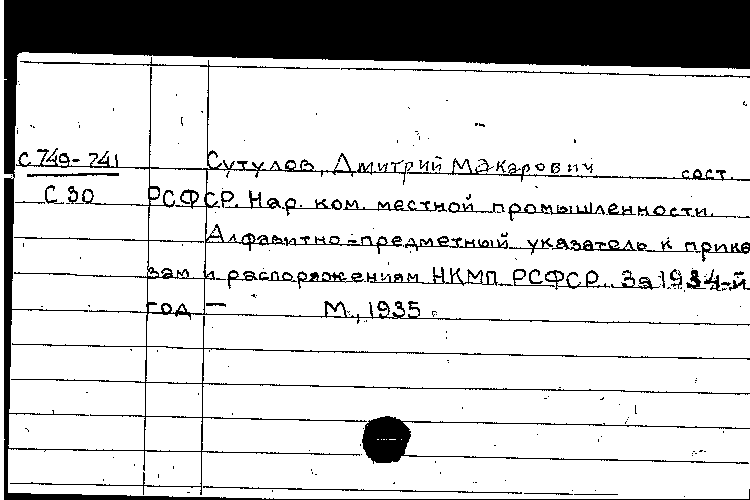 С 749-741 Сутулов, Дмитрий Макарович сост.
С 30 РСФСР. Нар. ком. местной промышленности.
Алфавитно-предметный указатель к прика
зам и распоряжениям НКМП РСФСР. За 1934-й
год — М., 1935.